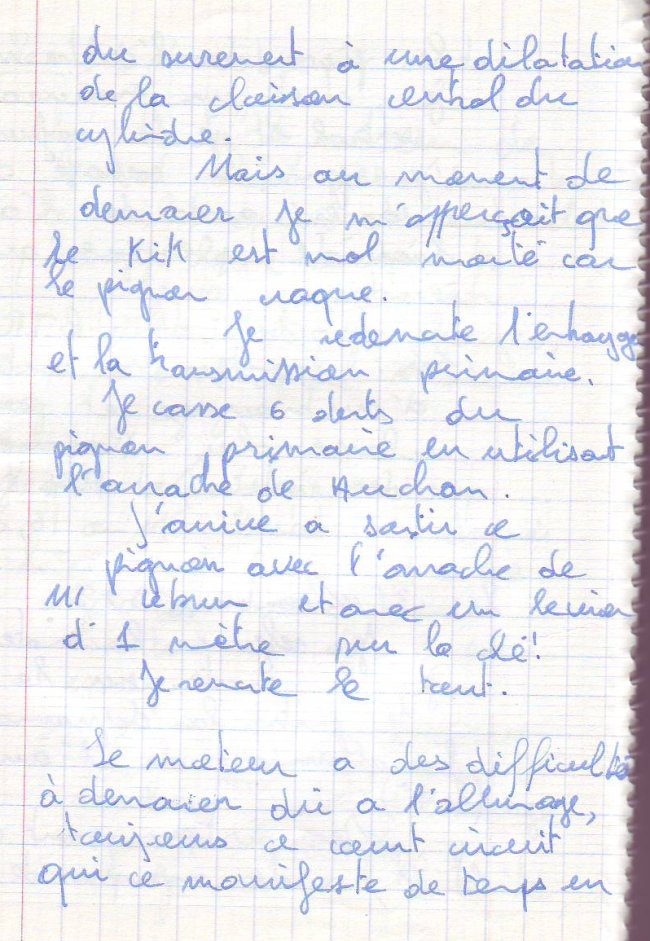 du surement à une dilatation
de la cloison central du
cylindre.
Mais au moment de
demarer je m'apperçoit que
le Kik est mal monté car
le pignon craque.
Je redemonte l'enbrayage
et la transmission primaire.
Je casse 6 dents du
pignon primaire en utilisant
l'arrache de Auchan.
J'arrive a sortir ce
pignon avec l'arrache de
Mr lebrun et avec un levier
d'1 mètre sur la clé!
Je remonte le tout.
Le moteur a des difficultés
à demarer dû a l'allumage,
toujours ce court circuit
qui ce manifeste de temps en